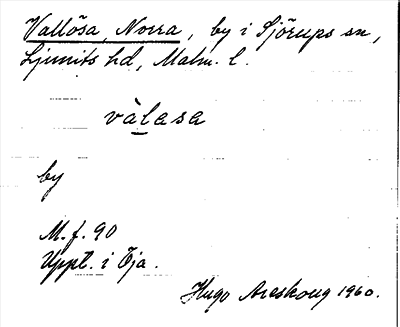 Vallösa, Norra, by i Sjörups sn,
Ljunits hd, Malm. l.
vàlasa
by
M. f. 90
Uppt. i Öja.
Hugo Areskoug 1960.